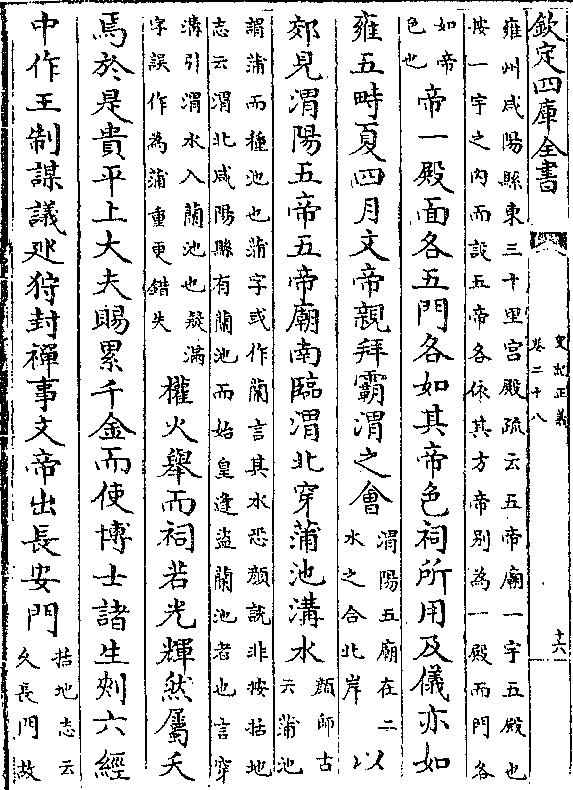 欽定四庫全書
史記正義
卷二十八
十六
雍州咸陽縣東三十里宫殿疏云五帝廟一宇五殿也
按一宇之内而設五帝各依其方帝别為一殿而門各
如帝
色也
帝一殿面各五門各如其帝色祠所用及儀亦如
雍五畤夏四月文帝親拜霸渭之會
渭陽五廟在二
水之合北岸
以
郊見渭陽五帝五帝廟南臨渭北穿蒲池溝水
顔師古
云蒲池
謂蒲而種池也蒲字或作蘭言其水恐顔說非按括地
志云渭北咸陽縣有蘭池而始皇逢盜蘭池者也言穿
溝引渭水入蘭池也疑滿
字誤作為蒲重更錯失
權火舉而祠若光輝然屬天
焉於是貴平上大夫賜累千金而使博士諸生刺六經
中作王制謀議廵狩封禪事文帝出長安門
括地志云
久長門故